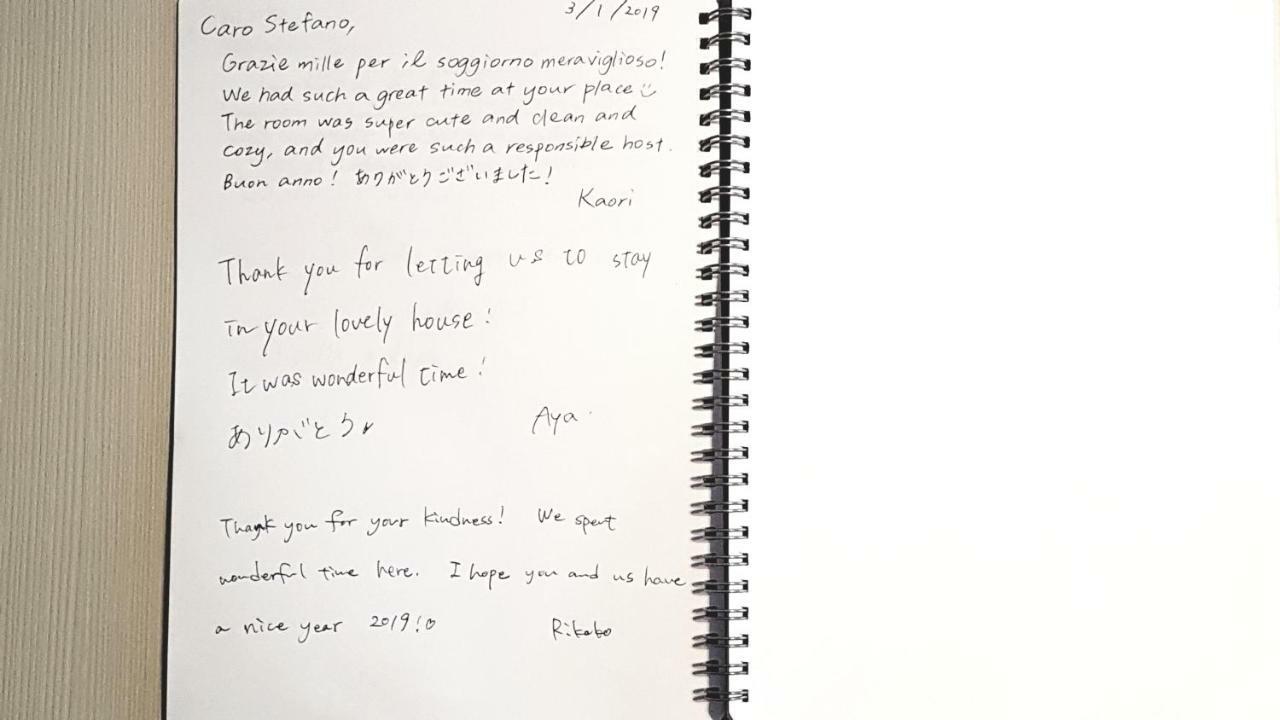 3/1/2019
Caro Stefano,
Grazie mille per il soggiorno meraviglioso!
We had such a great time at your place
The room was super cute and clean and
cozy, and you were such a responsible host.
Buon anno! ありがとうございました!
Kaori
Thank you for letting us to stay
in your lovely house!
It was wonderful time!
ありがとう♥
Aya
Thank you for your kindness! We spent
wonderful time here. I hope you and us have
a nice year 2019!♡